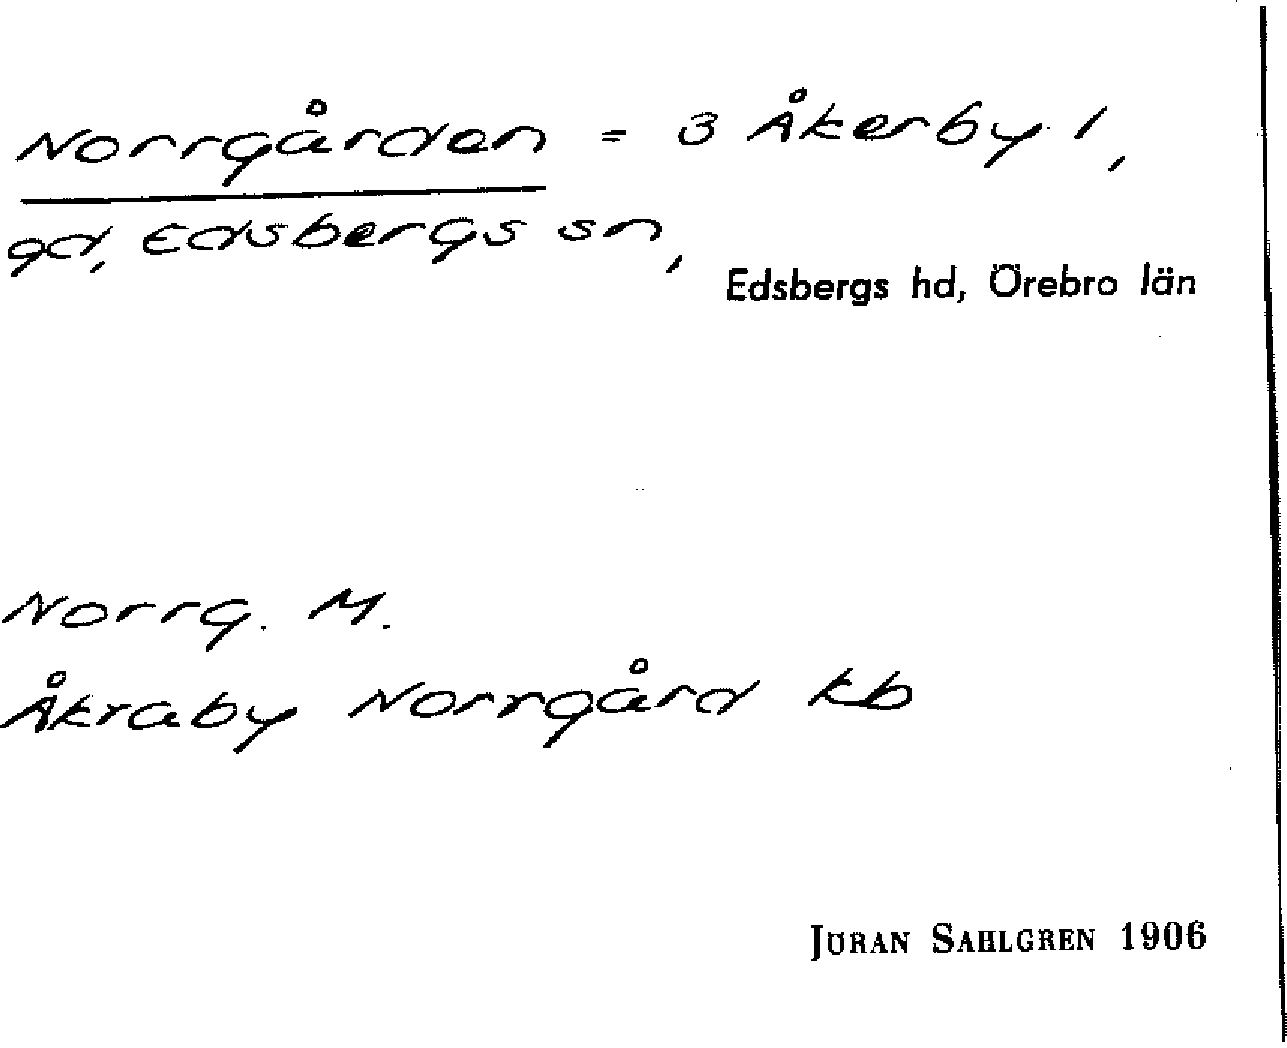 Norrgården = 3 Åkerby 1,
gd, Edsbergs sn,
Edsbergs hd, Örebro län
Norrg. M.
Åkraby Norrgård kb
JÖRAN SAHLGREN 1906